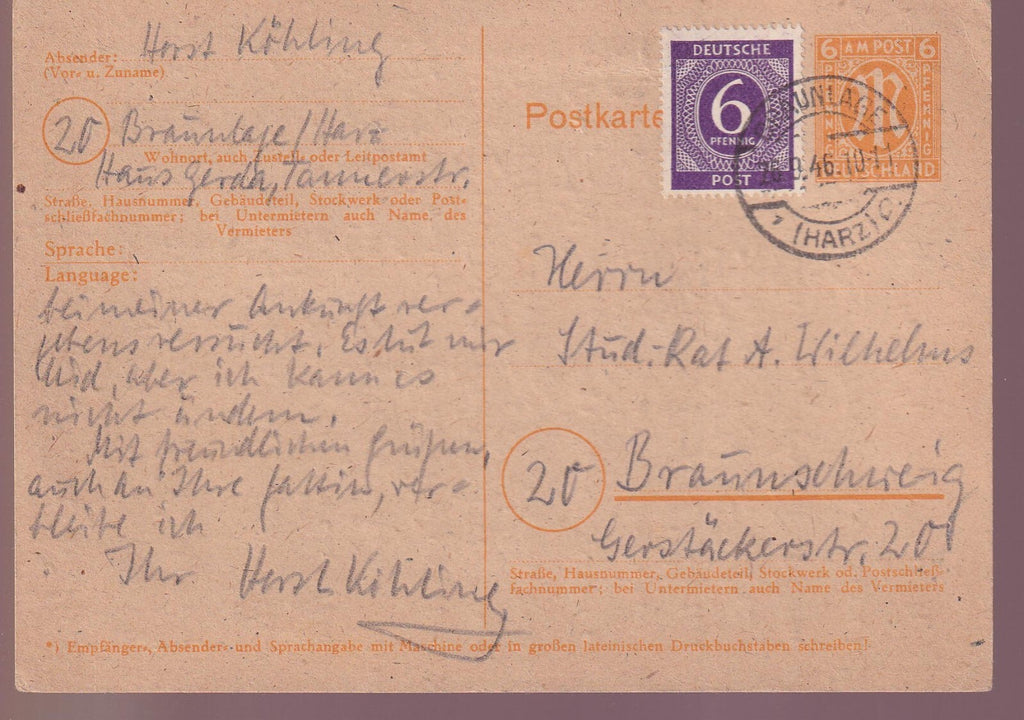 Absender: Horst Köhling
(Vor- u. Zuname)
20 Braunlage/Harz
Wohnort, auch Zustell- oder Leitpostamt
Haus Gerda, Tannerstr.
Straße, Hausnummer, Gebäudeteil, Stockwerk oder Post-
schließfachnummer; bei Untermietern auch Name des
Vermieters
Sprache:
Language:
bei meiner Ankunft ver-
gebens versucht. Es tut mir
leid, aber ich kann es
nicht ändern.
Mit freundlichen Grüßen,
auch an Ihre Gattin, ver-
bleibe ich
Ihr Horst Köhling
Postkarte
DEUTSCHE
6
PFENNIG
POST
6 AM POST 6
PFENNIG
PFENNIG
M
DEUTSCHLAND
BRAUNLAGE
.9.46.10-11
(HARZ) C
Herrn
Stud.-Rat A. Wilhelms
20 Braunschweig
Gerstäckerstr. 20
Straße, Hausnummer, Gebäudeteil, Stockwerk od. Postschließ-
fachnummer; bei Untermietern auch Name des Vermieters
*) Empfänger-, Absender- und Sprachangabe mit Maschine oder in großen lateinischen Druckbuchstaben schreiben!